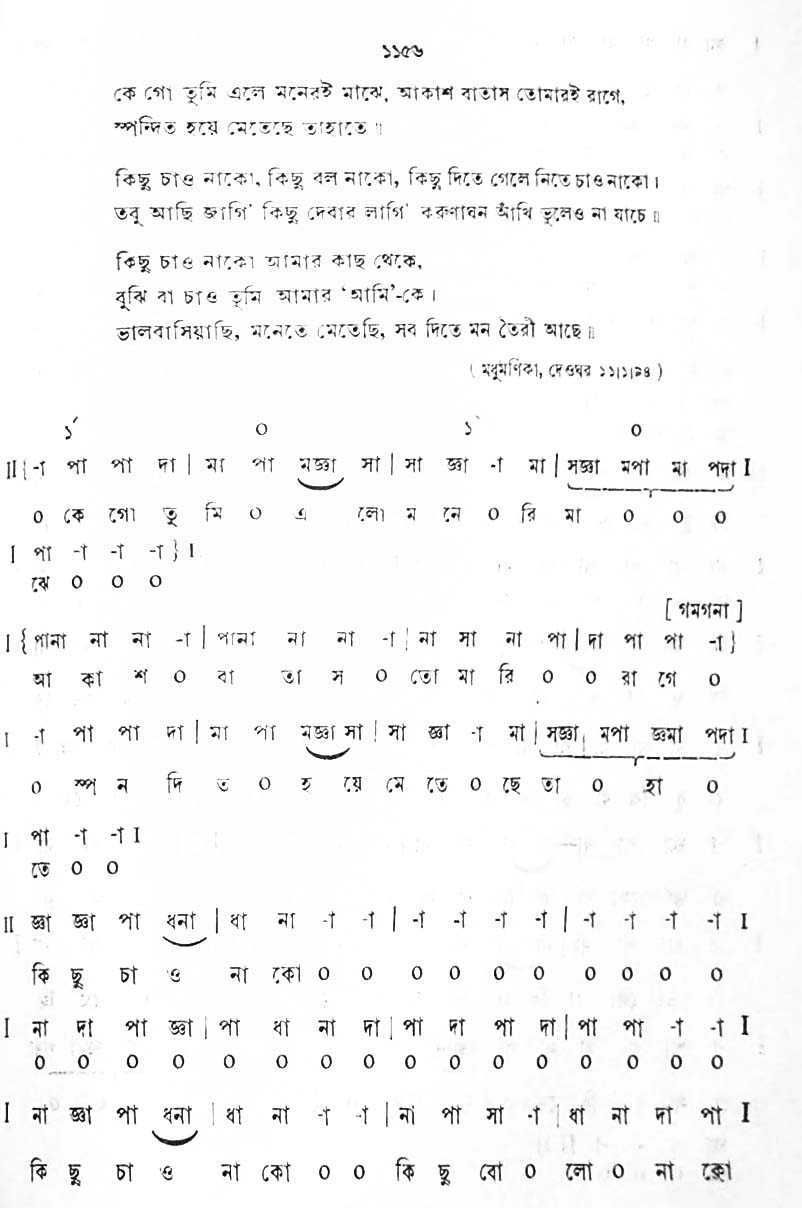 ১১৫৬
কে গো তুমি এলে মনেরই মাঝে, আকাশ বাতাস তোমারই রাগে,
স্পন্দিত হয়ে মেতেছে তাহাতে ॥
কিছু চাও নাকো, কিছু বল নাকো, কিছু দিতে গেলে নিতে চাও নাকো।
তবু আছি জাগি' কিছু দেবার লাগি' করুণাঘন আঁখি ভুলেও না যাচে॥
কিছু চাও নাকো আমার কাছ থেকে,
বুঝি বা চাও তুমি আমার ‘আমি’-কে।
ভালবাসিয়াছি, মনেতে মেতেছি, সব দিতে মন তৈরী আছে॥
( মধুমণিকা, দেওঘর ১১।১।৯৪ )
১´ ০ ১` ০
II{-া পা পা দা | মা পা মজ্ঞা সা | সা জ্ঞা -া মা | সজ্ঞা মপা মা পদা I
০ কে গো তু মি ০ এ লো ম নে ০ রি মা ০ ০ ০
I পা -া -া -া } I
ঝে ০ ০ ০
[ গমগনা ]
I {পানা না না -া | পানা না না -া | না সা না পা | দা পা পা -া}
আ কা শ ০ বা তা স ০ তো মা রি ০ ০ রা গে ০
I -া পা পা দা | মা পা মজ্ঞা সা | সা জ্ঞা -া মা | সজ্ঞা মপা জ্ঞমা পদা I
০ স্প ন দি ত ০ হ য়ে মে তে ০ ছে তা ০ হা ০
I পা -া -া I
তে ০ ০
II জ্ঞা জ্ঞা পা ধনা | ধা না -া -া | -া -া -া -া | -া -া -া -া I
কি ছু চা ও না কো ০ ০ ০ ০ ০ ০ ০ ০ ০ ০
I না দা পা জ্ঞা | পা ধা না দা | পা দা পা দা | পা পা -া -া I
০ ০ ০ ০ ০ ০ ০ ০ ০ ০ ০ ০ ০ ০ ০ ০
I না জ্ঞা পা ধনা | ধা না -া -া | না পা সা -া | ধা না দা পা I
কি ছু চা ও না কো ০ ০ কি ছু বো ০ লো ০ না ক্বো